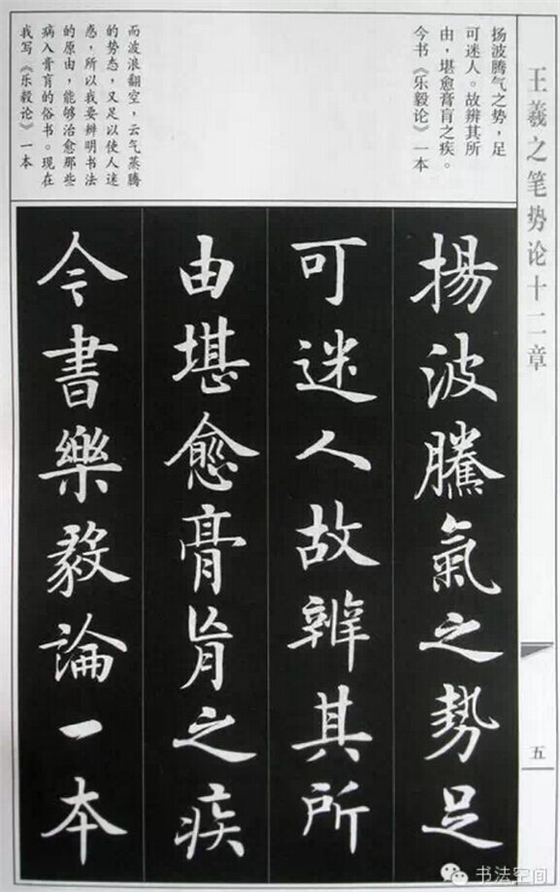 王羲之笔势论十二章
五
扬波腾气之势，足
可迷人。故辨其所
由，堪愈膏肓之疾。
今书《乐毅论》一本
而波浪翻空，云气蒸腾
的势态，又足以使人迷
惑，所以我要辨明书法
的原由，能够治愈那些
病入膏肓的俗书。现在
我写《乐毅论》一本
揚波騰氣之勢足
可迷人故辨其所
由堪愈膏肓之疾
今書樂毅論一本
书法空间